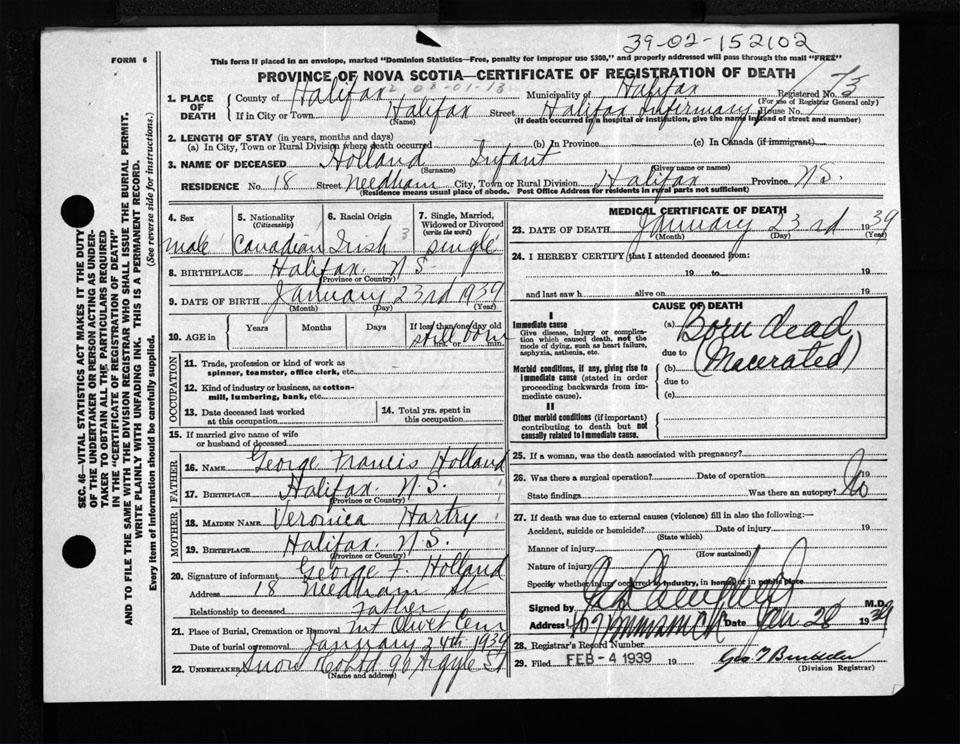 39-02-152102
FORM 6
This form if placed in an envelope, marked "Dominion Statistics—Free, penalty for improper use $300," and properly addressed will pass through the mail "FREE"
PROVINCE OF NOVA SCOTIA—CERTIFICATE OF REGISTRATION OF DEATH
1. PLACE OF DEATH
County of Halifax Municipality of Halifax Registered No. 73
(For use of Registrar General only)
If in City or Town Halifax Street Halifax Infirmary House No.
(Name) (If death occurred in a hospital or institution, give the name instead of street and number)
2. LENGTH OF STAY (in years, months and days)
(a) In City, Town or Rural Division where death occurred (b) In Province (c) In Canada (if immigrant)
3. NAME OF DECEASED Holland Infant
(Surname) (Given name or names)
RESIDENCE No. 18 Street Needham City, Town or Rural Division Halifax Province N.S.
(Residence means usual place of abode. Post Office Address for residents in rural parts not sufficient)
4. Sex 5. Nationality (Citizenship) 6. Racial Origin 7. Single, Married, Widowed or Divorced (write the word)
male Canadian Irish 3 single
8. BIRTHPLACE Halifax. N.S.
(Province or Country)
9. DATE OF BIRTH January 23rd 1939
(Month) (Day) (Year)
10. AGE in Years Months Days If less than one day old
still born
hrs. or min.
OCCUPATION
11. Trade, profession or kind of work as spinner, teamster, office clerk, etc.
12. Kind of industry or business, as cotton-mill, lumbering, bank, etc.
13. Date deceased last worked at this occupation 14. Total yrs. spent in this occupation
15. If married give name of wife or husband of deceased
FATHER
16. NAME George Francis Holland
17. BIRTHPLACE Halifax N.S.
(Province or Country)
MOTHER
18. MAIDEN NAME Veronica Hartry
19. BIRTHPLACE Halifax. N.S.
(Province or Country)
20. Signature of informant George F. Holland
Address 18 Needham St
Relationship to deceased Father
21. Place of Burial, Cremation or Removal Mt Olivet Cem
Date of burial or removal January 24th 1939
22. UNDERTAKER Snow Co Ltd 90 Argyle St
(Name and address)
MEDICAL CERTIFICATE OF DEATH
23. DATE OF DEATH January 23rd 1939
(Month) (Day) (Year)
24. I HEREBY CERTIFY that I attended deceased from:
19 to 19
and last saw h alive on 19
CAUSE OF DEATH
I
Immediate cause
Give disease, injury or complication which caused death, not the mode of dying, such as heart failure, asphyxia, asthenia, etc.
(a) Born dead
due to
Morbid conditions, if any, giving rise to immediate cause (stated in order proceeding backwards from immediate cause).
(b) (Macerated)
due to
(c)
II
Other morbid conditions (if important) contributing to death but not causally related to immediate cause.
25. If a woman, was the death associated with pregnancy?
26. Was there a surgical operation? Date of operation 19
State findings Was there an autopsy? No
27. If death was due to external causes (violence) fill in also the following:—
Accident, suicide or homicide? Date of injury 19
(State which)
Manner of injury
(How sustained)
Nature of injury
Specify whether injury occurred in industry, in home or in public place
Signed by M.D.
Address Date Jan 28 1939
28. Registrar's Record Number
29. Filed FEB -4 1939 19
(Division Registrar)
SEC. 46—VITAL STATISTICS ACT MAKES IT THE DUTY
OF THE UNDERTAKER OR PERSON ACTING AS UNDER-
TAKER TO OBTAIN ALL THE PARTICULARS REQUIRED
IN THE "CERTIFICATE OF REGISTRATION OF DEATH"
AND TO FILE THE SAME WITH THE DIVISION REGISTRAR WHO SHALL ISSUE THE BURIAL PERMIT.
WRITE PLAINLY WITH UNFADING INK. THIS IS A PERMANENT RECORD.
Every item of information should be carefully supplied. (See reverse side for instructions.)